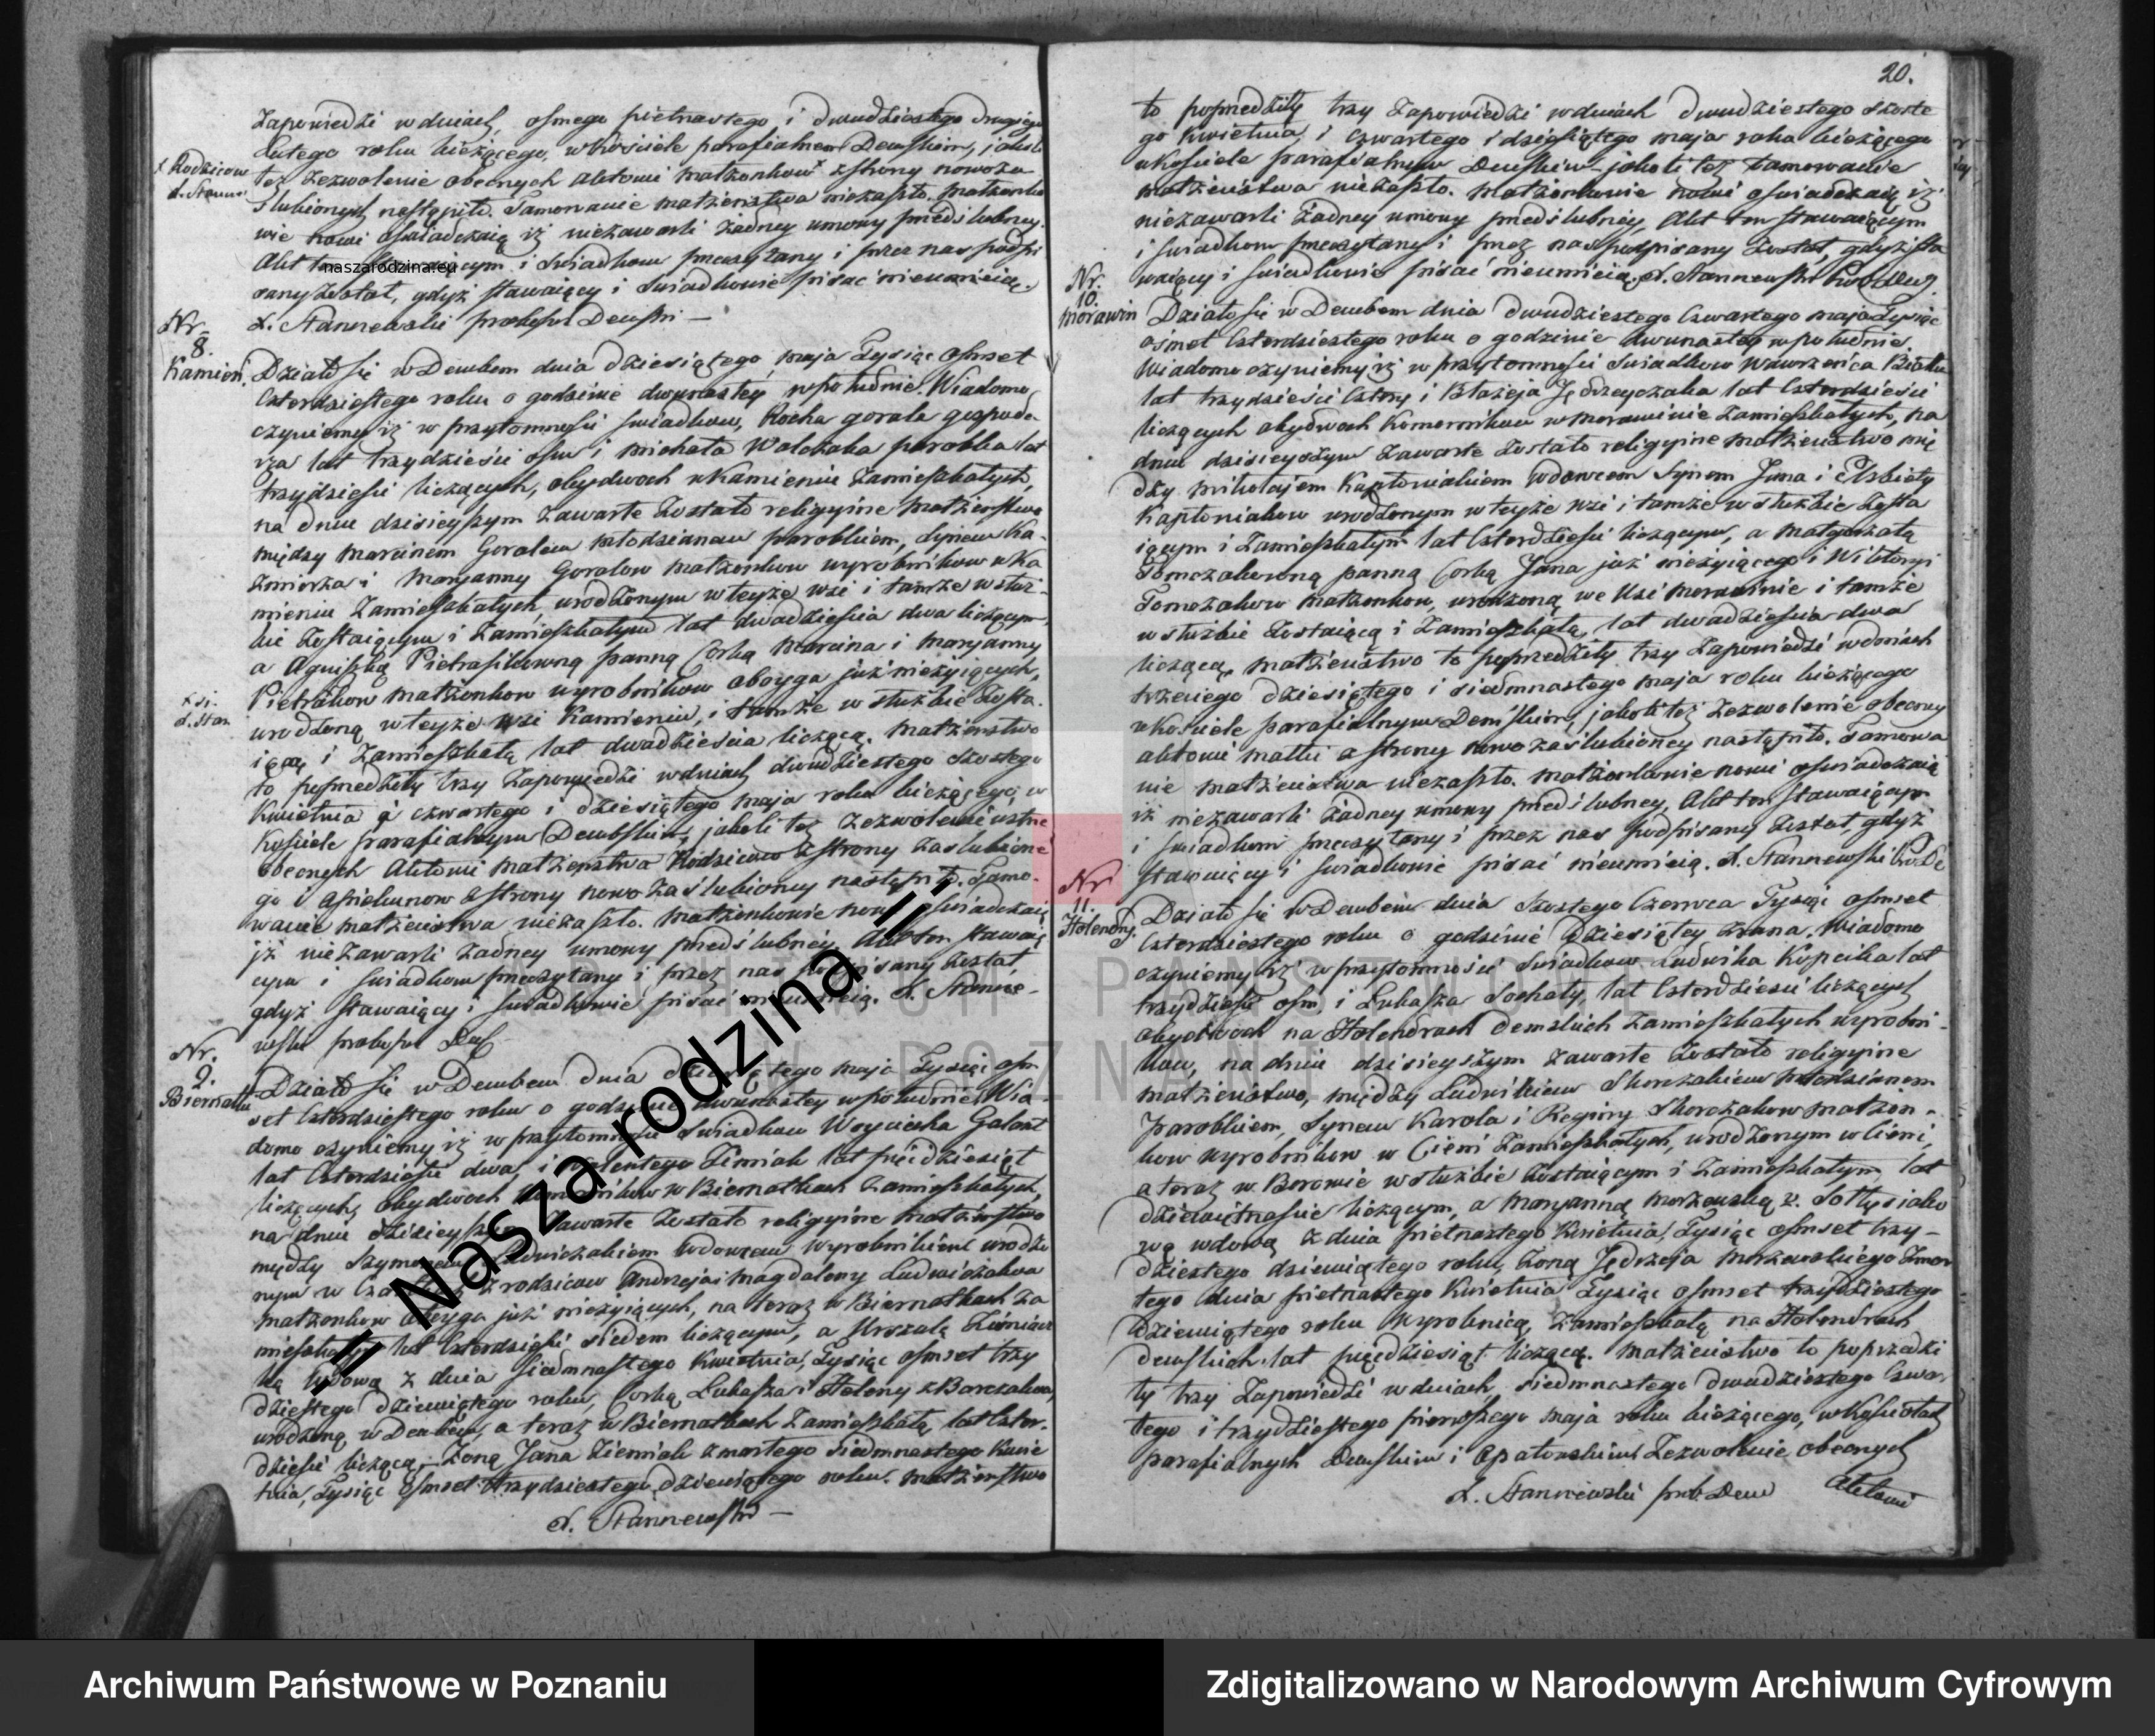 Zapowiedzi w dniach, osmego pietnastego i dwudziestego drugiego
Lutego roku bieżącego, w kościele parafialnem Dembskim, jakoli
x Rodzicow
też Zezwolenie obecnych Aktowi małżonkow x strony nowoza
ślubionych nastąpiło. Tamowanie małżeństwa niezaszło. Małżonko
wie nowi oświadczaią iż niezawarli żadney umowy przedślubney.
Akt ten stawaiącym i Swiadkom przeczytany i przez nas podpi
naszarodzina.eu
sany został, gdyż stawaiący i Swiadkowie pisać nieumieią.
Nr.
8.
Kamień.
Działo się w Dembem dnia dziesiątego maja Tysiąc osmset
Czterdziestego roku o godzinie dwunastey w południe. Wiadomo
czyniemy iż w przytomności swiadkow, Rocha gorala gospoda-
rza lat trzydzieści osm i michała Walczaka parobka lat
trzydzieści liczących, obydwoch w Kamieniu Zamieszkałych,
na dniu dzisieyszym Zawarte Zostało religiyne Małżeństwo
między Marcinem Goralem młodzianem parobkiem, Synem Ka-
zmierza i Maryanny Goralow małżonkow wyrobnikow w Ka
mieniu Zamieszkałych, urodzonym w teyże wsi i tamże w służ-
bie Zostaiącym i Zamieszkałym lat dwadzieścia dwa liczącym,
a Agniszką Pietrasikowną panną Corką Marcina i Maryanny
Pietrasikow małżonkow wyrobnikow oboyga już nieżyiących,
urodzoną w teyże wsi Kamieniu, i tamże w służbie Zosta-
iącą i Zamieszkałą lat dwadzieścia liczącą. Małżenstwo
to poprzedziły trzy Zapowiedzi w dniach dwudziestego szostego
Kwietnia czwartego i dziesiątego maja roku bieżącego, w
Kościele parafialnym Dembskim, jakoli też Zezwolenie ustne
obecnych Aktowi małżenstwa Rodzicow z strony Zaslubione
go i Opiekunow z strony nowo Zaślubioney nastąpiło. Tamo-
wanie małżeństwa niezaszło. Małżonkowie nowi oświadczaią
iż niezawarli żadney umowy przedślubney. Akt ten stawaią
cym i swiadkom przeczytany i przez nas podpisany został,
gdyż stawaiący i swiadkowie pisać nieumieią.
Nr.
9.
Biernatki
Działo się w Dembem dnia dziesiątego maja Tysiąc osm
set Czterdziestego roku o godzinie dwunastey w południe. Wia-
domo czyniemy iż w przytomności Swiadkow Woyciecha Galant
lat Czterdzieści dwa, i Walentego Zimiak lat pięćdziesiąt
liczących, obydwoch Komornikow w Biernatkach Zamieszkałych,
na dniu dzisieyszym Zawarte Zostało religiyne małżeństwo
między Szymonem Ludwiczakiem Wdowcem Wyrobnikiem urodzo
nym w z rodzicow Andrzeja i Magdaleny Ludwiczakow
małżonkow oboyga już nieżyiących, na teraz w Biernatkach Za
mieszkałym lat Czterdzieści siedem liczącym, a Urszulą
ką Wdową z dnia siedmnastego Kwietnia, Tysiąc osmset trzy
dziestego dziewiątego roku, Corką Łukasza i Heleny
urodzoną w Dembem, a teraz w Biernatkach Zamieszkałą, lat Czter-
dzieści liczącą, Żoną Jana Ziemiak zmarłego siedmnastego Kwie
tnia, Tysiąc Osmset trzydziestego dziewiątego roku. Małżeństwo
|| Nasza rodzina ||
20.
to poprzedziły trzy Zapowiedzi w dniach dwudziestego szoste
go Kwietnia, i czwartego i dziesiątego maja roku bieżącego
w kościele parafialnym Dembskim jakoli też tamowanie
małżeństwa niezaszło. Małżonkowie nowi oświadczaią iż
niezawarli żadney umowy przedślubney, Akt ten stawaiącym
i swiadkom przeczytany i przez nas podpisany został, gdyż sta
waiący i swiadkowie pisać nieumieią.
Nr.
10.
Morawin
Działo się w Dembem dnia dwudziestego Czwartego maja Tysiąc
osmset Czterdziestego roku o godzinie dwunastey w południe.
Wiadomo czyniemy iż w przytomności Swiadkow Wawrzeńca
lat trzydzieści Cztery i Błażeja Jędrzeyczaka lat Czterdzieści
liczących obydwoch Komornikow w Morawinie Zamieszkałych, na
dniu dzisieyszym Zawarte Zostało religiyne małżeństwo mię
dzy Mikołajem Kaptoniakiem Wdowcem Synem Jana i Elżbiety
Kaptoniakow urodzonym w teyże wsi i tamże w służbie Zosta
iącym i Zamieszkałym lat Czterdzieści liczącym, a Małgorzatą
Tomczakowną panną Corką Jana już nieżyiącego i Wiktoryi
Tomczakow małżonkow, urodzoną we Wsi Morawinie i tamże
w służbie Zostaiącą i Zamieszkałą, lat dwadzieścia dwa
liczącą, małżeństwo to poprzedziły trzy Zapowiedzi w dniach
trzeciego dziesiątego i siedmnastego maja roku bieżącego
w Kościele parafialnym Dembskim, jakoli też Zezwolenie obecney
aktowi matki z strony nowo zaślubioney nastąpiło. Tamowa
nie małżeństwa niezaszło. Małżonkowie nowi oświadczaią
iż niezawarli żadney umowy przedślubney, Akt ten stawaiącym
i swiadkom przeczytany i przez nas podpisany został, gdyż
stawaiący i swiadkowie pisać nieumieią.
Nr
11.
Holendry.
Działo się w Dembem dnia szostego Czerwca Tysiąc osmset
Czterdziestego roku o godzinie dziesiątey zrana. Wiadomo
czyniemy iż w przytomności Swiadkow Ludwika Kopcika lat
trzydzieści osm, i Łukasza Sochały, lat Czterdzieści liczących
obydwoch na Holendrach Demskich Zamieszkałych wyrobni-
kow, na dniu dzisieyszym zawarte Zostało religiyne
małżeństwo, między Ludwikiem Skorczakiem młodzianem
Parobkiem, Synem Karola i Reginy Skorczakow małżon-
kow wyrobnikow w Cieni Zamieszkałych, urodzonym w Cieni,
a teraz w Borowie w służbie Zostaiącym i Zamieszkałym lat
dziewiętnaście liczącym, a Maryanną Morzewską z Sołtysiako
wą wdową z dnia pietnastego Kwietnia, Tysiąc osmset trzy-
dziestego dziewiątego roku, Zoną Jędrzeja Morzewskiego Zmar
łego dnia pietnastego Kwietnia Tysiąc osmset trzydziestego
dziewiątego roku Wyrobnicą, Zamieszkałą na Holendrach
demskich, lat pięćdziesiąt liczącą. Małżeństwo to poprzedzi
ły trzy Zapowiedzi w dniach, siedmnastego dwudziestego Czwar
tego i trzydziestego pierwszego maja roku bieżącego, w Kościołach
parafialnych Demskim i Opatowskim Zezwolenie obecnych
Aktowi
ARCHIWUM PAŃSTWOWE
W POZNANIU
Archiwum Państwowe w Poznaniu
Zdigitalizowano w Narodowym Archiwum Cyfrowym